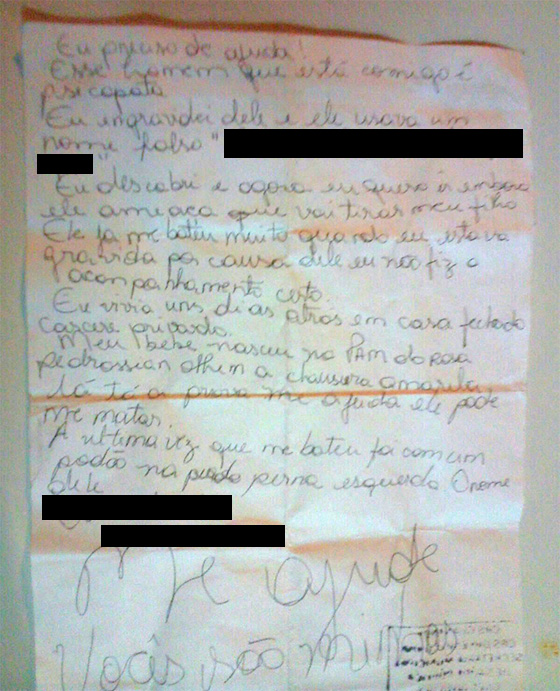 Eu preciso de ajuda!
Esse homem que está comigo é
psicopata
Eu engravidei dele e ele usava um
nome falso "
"
Eu descobri e agora eu quero ir embora
ele ameaça que vai tirar meu filho
Ele já me bateu muito quando eu estava
gravida por causa dele eu não fiz o
acompanhamento certo.
Eu vivia uns dias atrás em casa fechado
carcere privado.
Meu bebê nasceu no PAM do rosa
pedrossian olhem a chausura amarela,
lá tá a prova me ajuda ele pode
me matar.
A ultima vez que me bateu foi com um
podão na perna esquerda O nome
dele
Me ajude
Vocês são